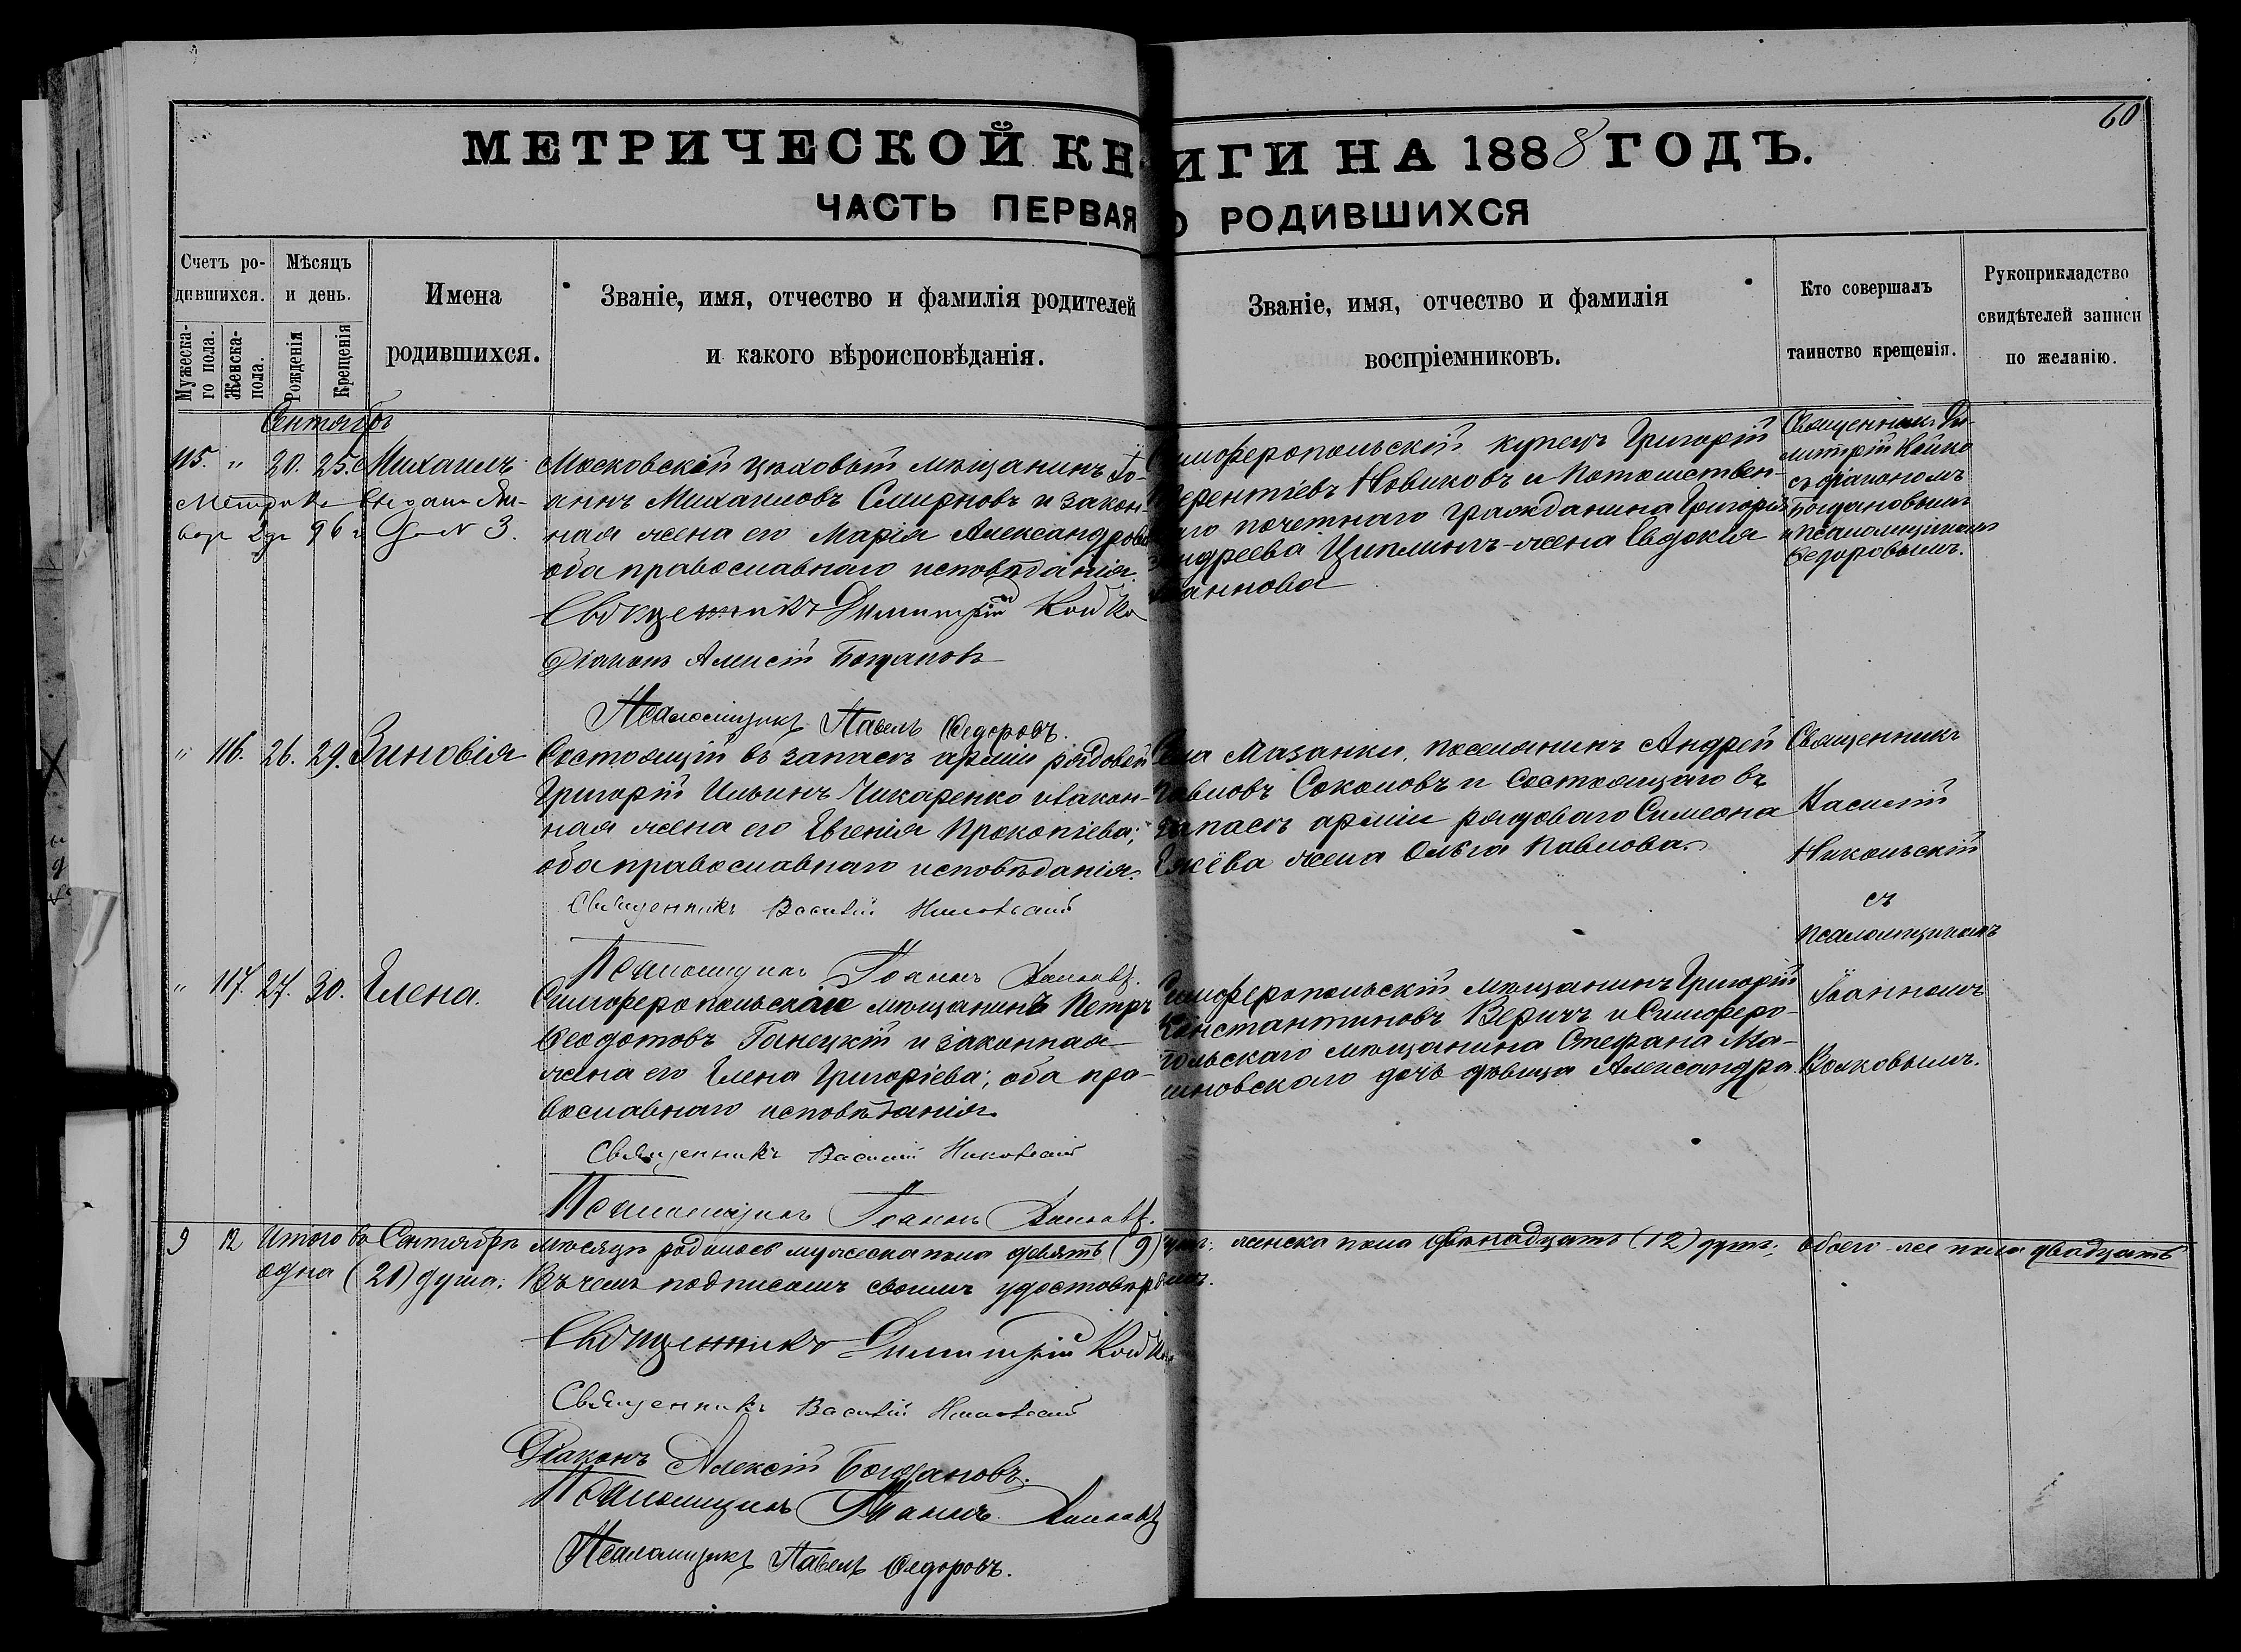 60
МЕТРИЧЕСКОЙ КНИГИ НА 1888 ГОДЪ.
ЧАСТЬ ПЕРВАЯ О РОДИВШИХСЯ
Счетъ родившихся.
Мужеска-го пола.
Женска-пола.
Мѣсяцъ и день.
Рожденія
Крещенія
Имена родившихся.
Званіе, имя, отчество и фамилія родителей
и какого вѣроисповѣданія.
Званіе, имя, отчество и фамилія
воспріемниковъ.
Кто совершалъ
таинство крещенія.
Рукоприкладство
свидѣтелей записи
по желанію.
Сентябрь
115. " 20. 25. Михаилъ
Московскій цеховый мѣщанинъ Іо-
аннъ Михаиловъ Смирновъ и закон-
ная жена его Марія Александрова
оба православнаго исповѣданія.
Священникъ Димитрій Койко
Діаконъ Алексій Богдановъ
Псаломщикъ Павелъ Федоровъ.
Симферопольскій купецъ Григорій
Терентіевъ Новиковъ и Потомствен-
наго почетнаго гражданина Григорія
Андреева Циплинъ жена Евдокія
Іоаннова
Священникъ Ди-
митрій Койко
съ діакономъ
Богдановымъ
и псаломщикомъ
Федоровымъ.
Метрика выдана Ян-
варя 2 дн 96 г. за N 3.
" 116. 26. 29. Зиновія
Состоящій въ запасѣ арміи рядовой
Григорій Ильинъ Чикаренко и закон-
ная жена его Евгенія Прокопіева;
оба православнаго исповѣданія.
Священникъ Василій Никольскій
Псаломщикъ Іоаннъ Волковъ.
Села Мазанки, поселянинъ Андрей
Павловъ Соколовъ и состоящаго въ
запасѣ арміи рядоваго Симеона
жена Ольга Павлова.
Священникъ
Василій
Никольскій
съ
псаломщикомъ
Іоанномъ
Волковымъ.
" 117. 27. 30. Елена.
Симферопольскій мѣщанинъ Петръ
Ѳеодотовъ Ганецкій и законная
жена его Елена Григоріева; оба пра-
вославнаго исповѣданія.
Священникъ Василій Никольскій
Псаломщикъ Іоаннъ Волковъ.
Симферопольскій мѣщанинъ Григорій
Константиновъ Веричъ и Симферо-
польскаго мѣщанина Стефана Ма-
линовскаго дочь дѣвица Александра.
9 12 Итого въ Сентябрѣ мѣсяцѣ родилось мужеска пола девять (9) душъ; женска пола двѣнадцать (12) душъ; обоего же пола двадцать
одна (21) душа; Въ чемъ подписомъ своимъ удостовѣряемъ.
Священникъ Димитрій Койко
Священникъ Василій Никольскій
Діаконъ Алексій Богдановъ.
Псаломщикъ Іоаннъ Волковъ
Псаломщикъ Павелъ Федоровъ.